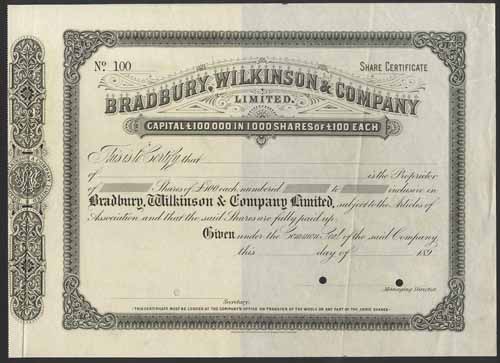 No 100
SHARE CERTIFICATE
BRADBURY, WILKINSON & COMPANY
LIMITED.
CAPITAL £100,000 IN 1000 SHARES OF £100 EACH
This is to Certify that
of is the Proprietor
of Shares of £100 each, numbered to inclusive in
Bradbury, Wilkinson & Company Limited, subject to the Articles of
Association and that the said Shares are fully paid up.
Given under the Common Seal of the said Company,
this day of 189
Managing Director
Secretary.
THIS CERTIFICATE MUST BE LODGED AT THE COMPANY'S OFFICE ON TRANSFER OF THE WHOLE OR ANY PART OF THE ABOVE SHARES